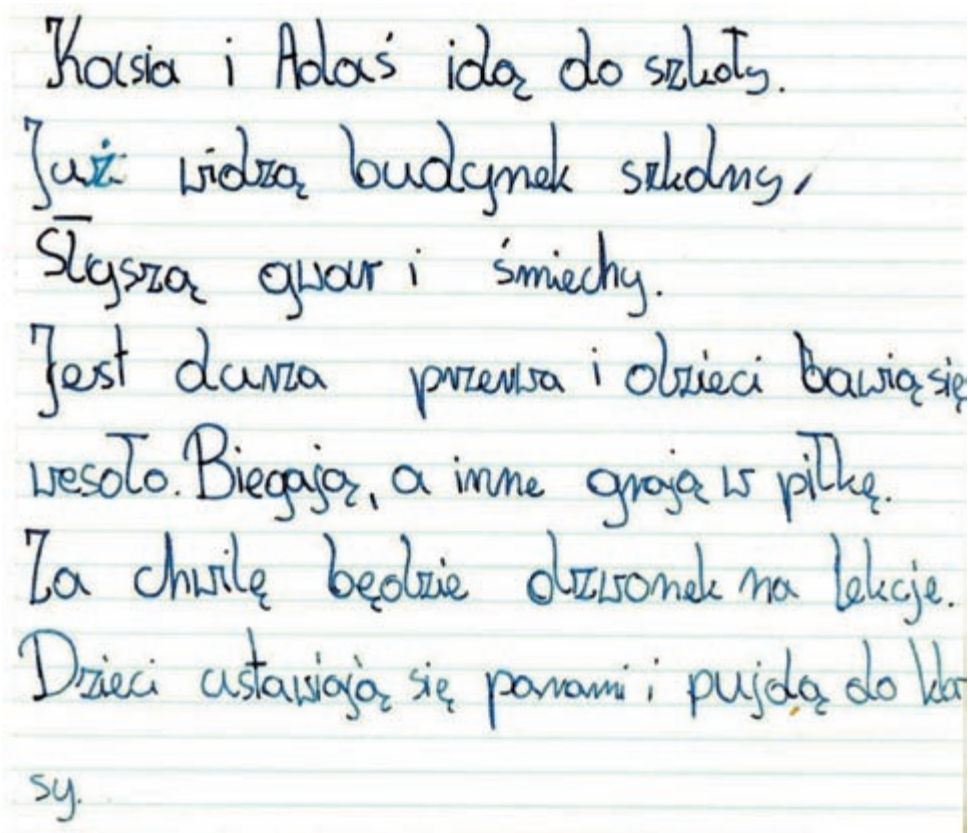 Kasia i Adaś idą do szkoły.
Już widzą budynek szkolny,
Słyszą gwar i śmiechy.
Jest duża przerwa i dzieci bawią się
wesoło. Biegają, a inne grają w piłkę.
Za chwilę będzie dzwonek na lekcje.
Dzieci ustawiają się parami i pujdą do kla
sy.